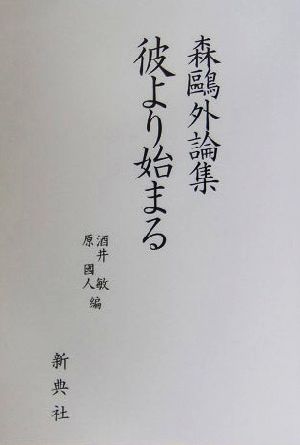 森鷗外論集
彼より始まる
酒井敏
原國人
編
新典社